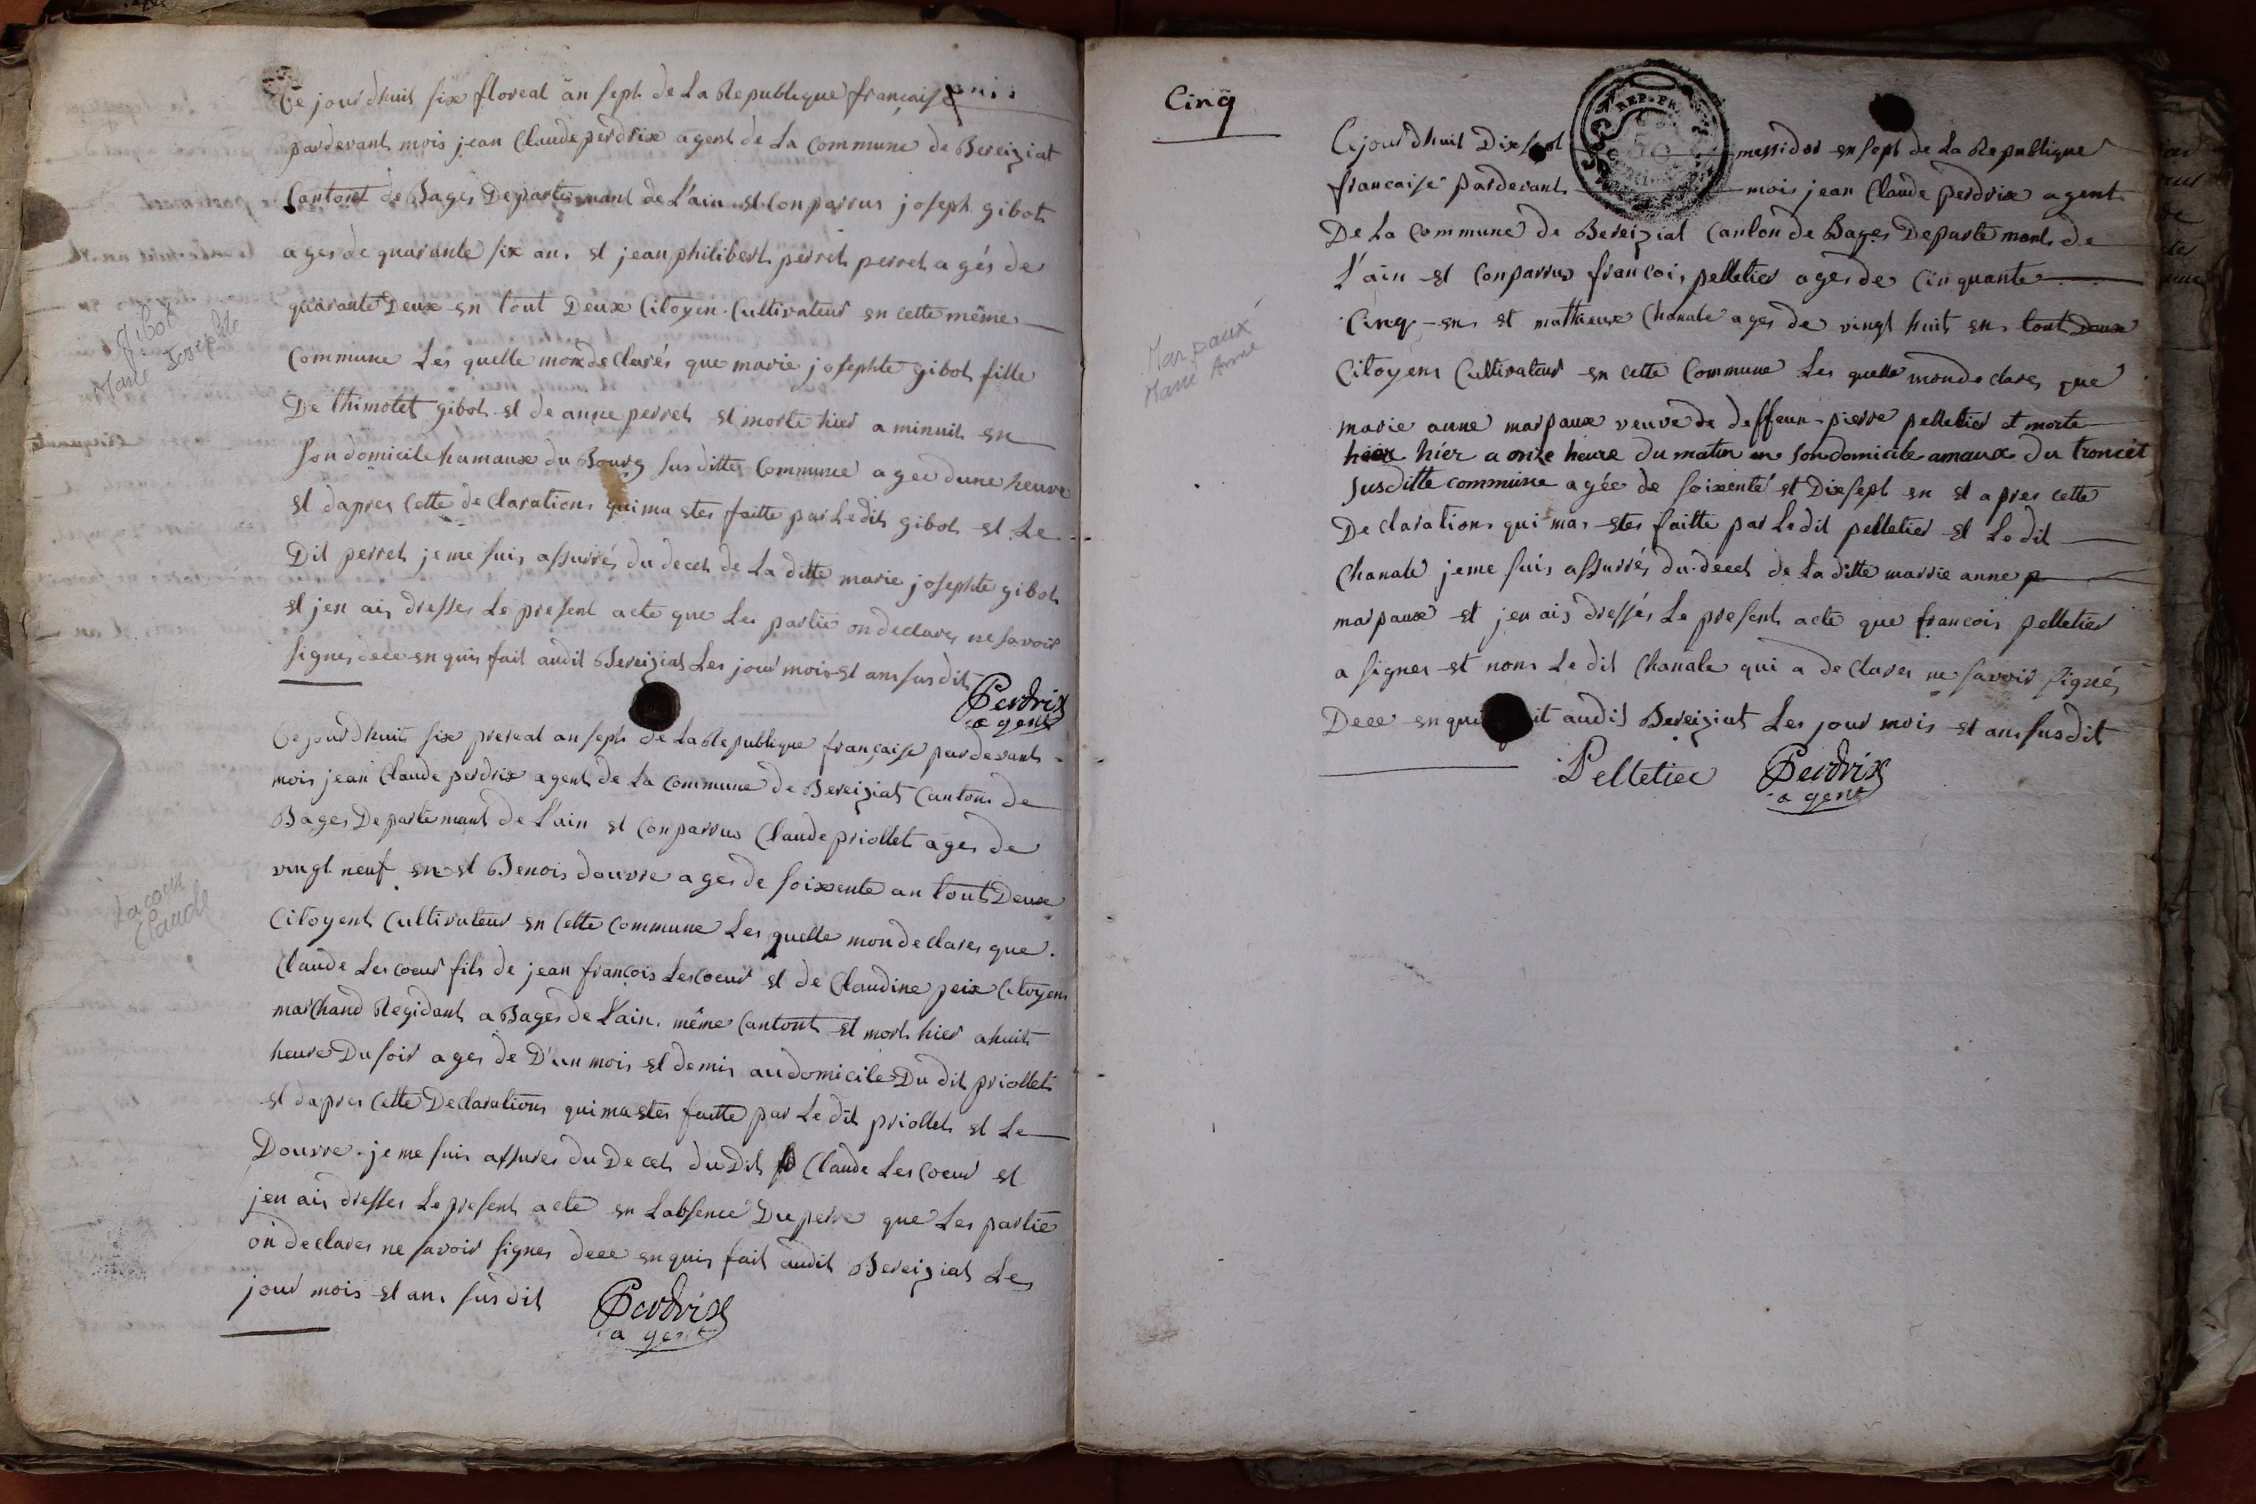 Ce jourdhuit six floreal an sept de La Republique française
pardevant mois jean Claude perdrix agent de La Commune de Bereiziat
Cantont de Bages Departemant de L'ain est Conparrus joseph gibot
ages de quarante six ans et jean philibert perret perret agés de
quarante Deux en tout Deux Citoyen Cultivateur en cette même
Commune Les quelle mon declarés que marie josephte gibot fille
De thimotet gibot et de anne perret et morte hier a minuit en
son domicile hamaux du Bourg sus ditte Commune agee dune heure
et dapres Cette declarations qui ma etes faitte par Le dit gibot et Le
Dit perret je me suis assurrés du decet de La ditte marie josephte gibot
et jen ais dresses Le present acte que Les partie on declares ne savoir
signes dece enquis fait audit Bereiziat Les jour mois et ans susdit
Perdrix
agent
Gibot
Marie Josephte
Ce jourdhuit six prereal an sept de La Republique française pardevant
mois jean Claude perdrix agent de La Commune de Bereiziat Cantons de
Bages Departemant de L'ain et Conparrus Claude priollet ages de
vingt neuf en et Benois douvre ages de soixente an tout Deux
Citoyent Cultivateur en Cette Commune Les quelle mon declares que
Claude Lescoeur fils de jean françois Lescoeur et de Claudine peix Citoyens
marchand Regidant a Bages de L'ain même Cantont et mort hier a huit
heure Du soir ages de D'un mois et demis au domicile Du dit priollet
et dapres Cette Declarations qui ma etes faitte par Le dit priollet et Le
Douvre je me suis assures du Decet du Dit Claude Lescoeur et
jen ais dresses Le present acte en Labsence Du perre que Les partie
on declares ne savoir signes dece enquis fait audit Bereiziat Les
jour mois et ans susdit
Perdrix
agent
Lacoeur
Claude
Cinq
REP. FR
50
Cejourdhuit Dixsept messidor en sept de La Republique
francaise pardevant mois jean Claude perdrix agent
De La Commune de Bereiziat Canton de Bages Departemant de
L'ain et Conparrus francois pelletier ages de Cinquante
Cinq en et mathieux Chanale ages de vingt huit en tout Deux
Citoyens Cultivateur en cette Commune Les quelle mon declares que
marie anne marpaux veuve de deffeun pierre pelletier et morte
hier hier a onze heure du matin en son domicile amaux du troncet
susditte commune agée de soixenté et Dixsept en et apres cette
Declarations qui mas etes faitte par Le dit pelletier et Le dit
Chanale jeme suis assurrés du decet de La ditte marrie anne p
marpaux et jen ais dressés Le present acte que francois pelletier
a signes et nons Le dit Chanale qui a declares ne savoir signés
Dece enquis fait audit Bereiziat Les jour mois et ans susdit
Pelletier Perdrix
agent
Marpaux
Marie Anne